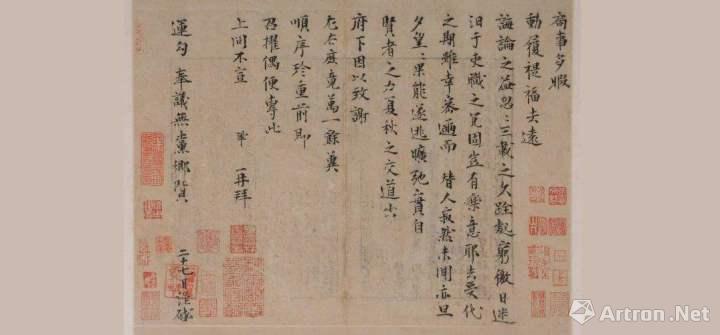 局事多暇
動履禔福去遠
誨論之益忽忽三載之久跧處窮徼日迷
汩于吏職之冗固豈有樂意耶去受代
之期雖幸密邇而替人寂然未聞亦旦
夕望望果能遂逃曠弛實自
賢者之力夏秋之交道出
府下因以致謝
左右庶竟萬一餘冀
順序珍重前即
召擢偶便專此
上問不宣 鞏 再拜
運勾奉議無黨鄉賢
二十七日謹啟
Artron.Net